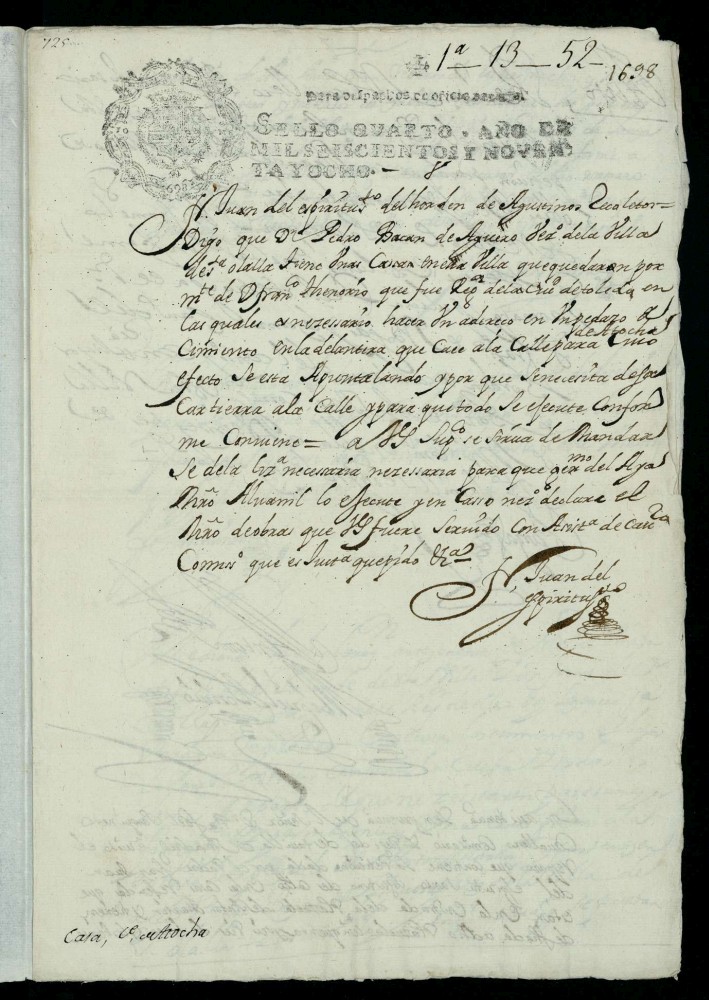 725
1ª 13 - 52 -
1698
Para despachos de oficio
SELLO QVARTO. AÑO DE
MIL SEISCIENTOS Y NOVEN
TA Y OCHO.
1698
Fr. Juan del espiritu sto del horden de Agustinos Recoletos =
Digo que Dn Pedro Bazan de Aguero Vezº de la Villa
de sta olalla tiene Vnas Cassas en esta Villa que quedaron por
mte de D franco thenorio que fue Regor de la ciud de toledo, en
las quales es nezessario hacer Vn aderezo en Vn pedazo de
Cimiento en la delantera, que Cae a la Calle de Atocha para Cuio
efecto se esta Apuntalando, y por que se necesita de sa
Car tierra a la Calle y para que todo Se efecute Confor
me Conviene = a VS Suppco se sirua de Mandar
Se de la liza necessaria nezessaria para que germo del
Mro Aluanil lo efecute y en Casso nezº declare el
Mro de obras que VS fuere Seruido Con Assista de Cauo
Comisso que es Justa que pido &a
Fr. Juan del
espiritu sto
Casa, Ce. de Atocha